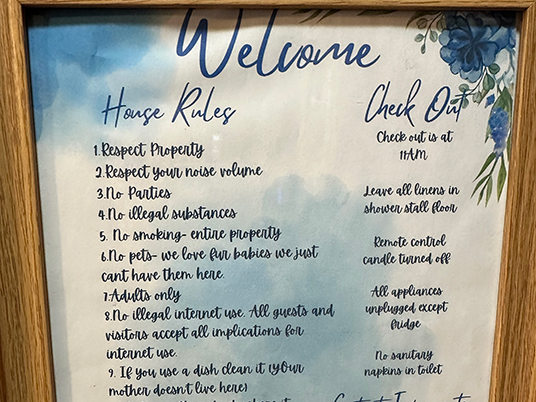 Welcome
House Rules
1.Respect Property
2.Respect your noise volume
3.No Parties
4.No illegal substances
5. No smoking- entire property
6.No pets- we love fur babies we just
cant have them here.
7.Adults only
8.No illegal internet use. All guests and
visitors accept all implications for
internet use.
9. If you use a dish clean it (yOur
mother doesn't live here)
Check Out
Check out is at
11AM
Leave all linens in
shower stall floor
Remote control
candle turned off
All appliances
unplugged except
fridge
No sanitary
napkins in toilet